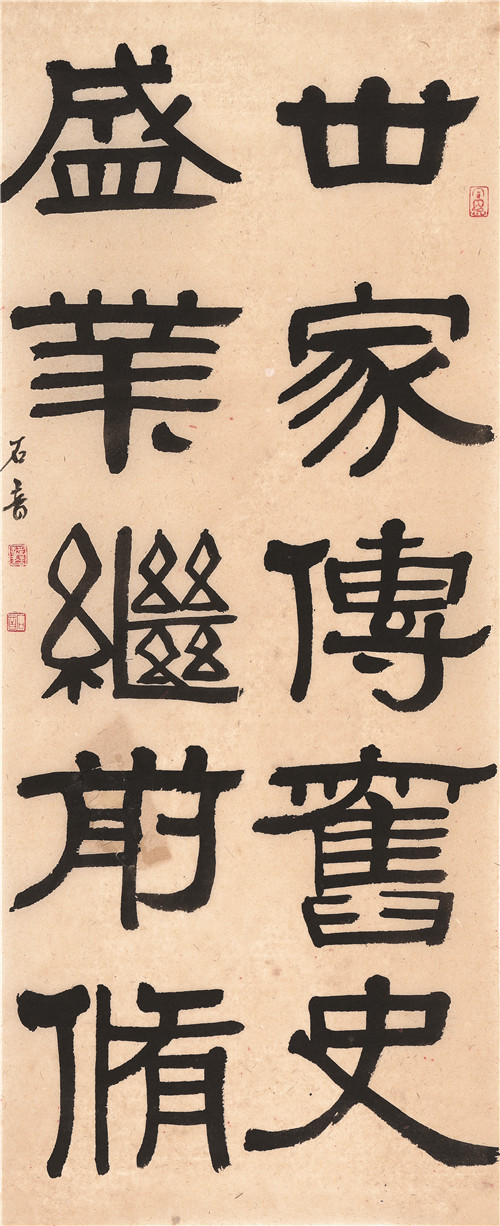 世家傳舊史
盛業繼前脩
石庵